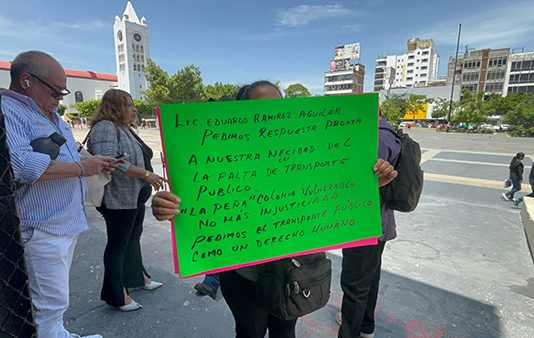 LIC. EDUARDO RAMIREZ AGUILAR
PEDIMOS RESPUESTA PRONTA
A NUESTRA NECIDAD EN
LA FALTA DE TRANSPORTE
PUBLICO.
"LA PEÑA" COLONIA VULNERABLE
NO MÁS INJUSTICIA...
PEDIMOS EL TRANSPORTE PUBLICO
COMO UN DERECHO HUMANO